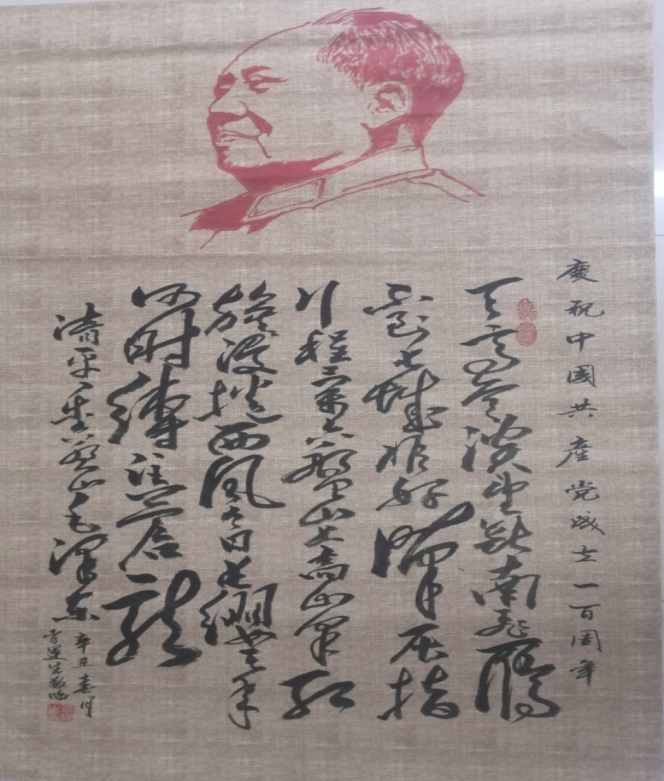 慶祝中國共產党成立一百周年
天高雲淡望斷南飛雁
不到長城非好漢屈指
行程二萬六盤山上高山軍紅
旗漫捲西風今日長纓在手
何時縛住蒼龍
清平樂六盤山毛澤東
辛丑春月